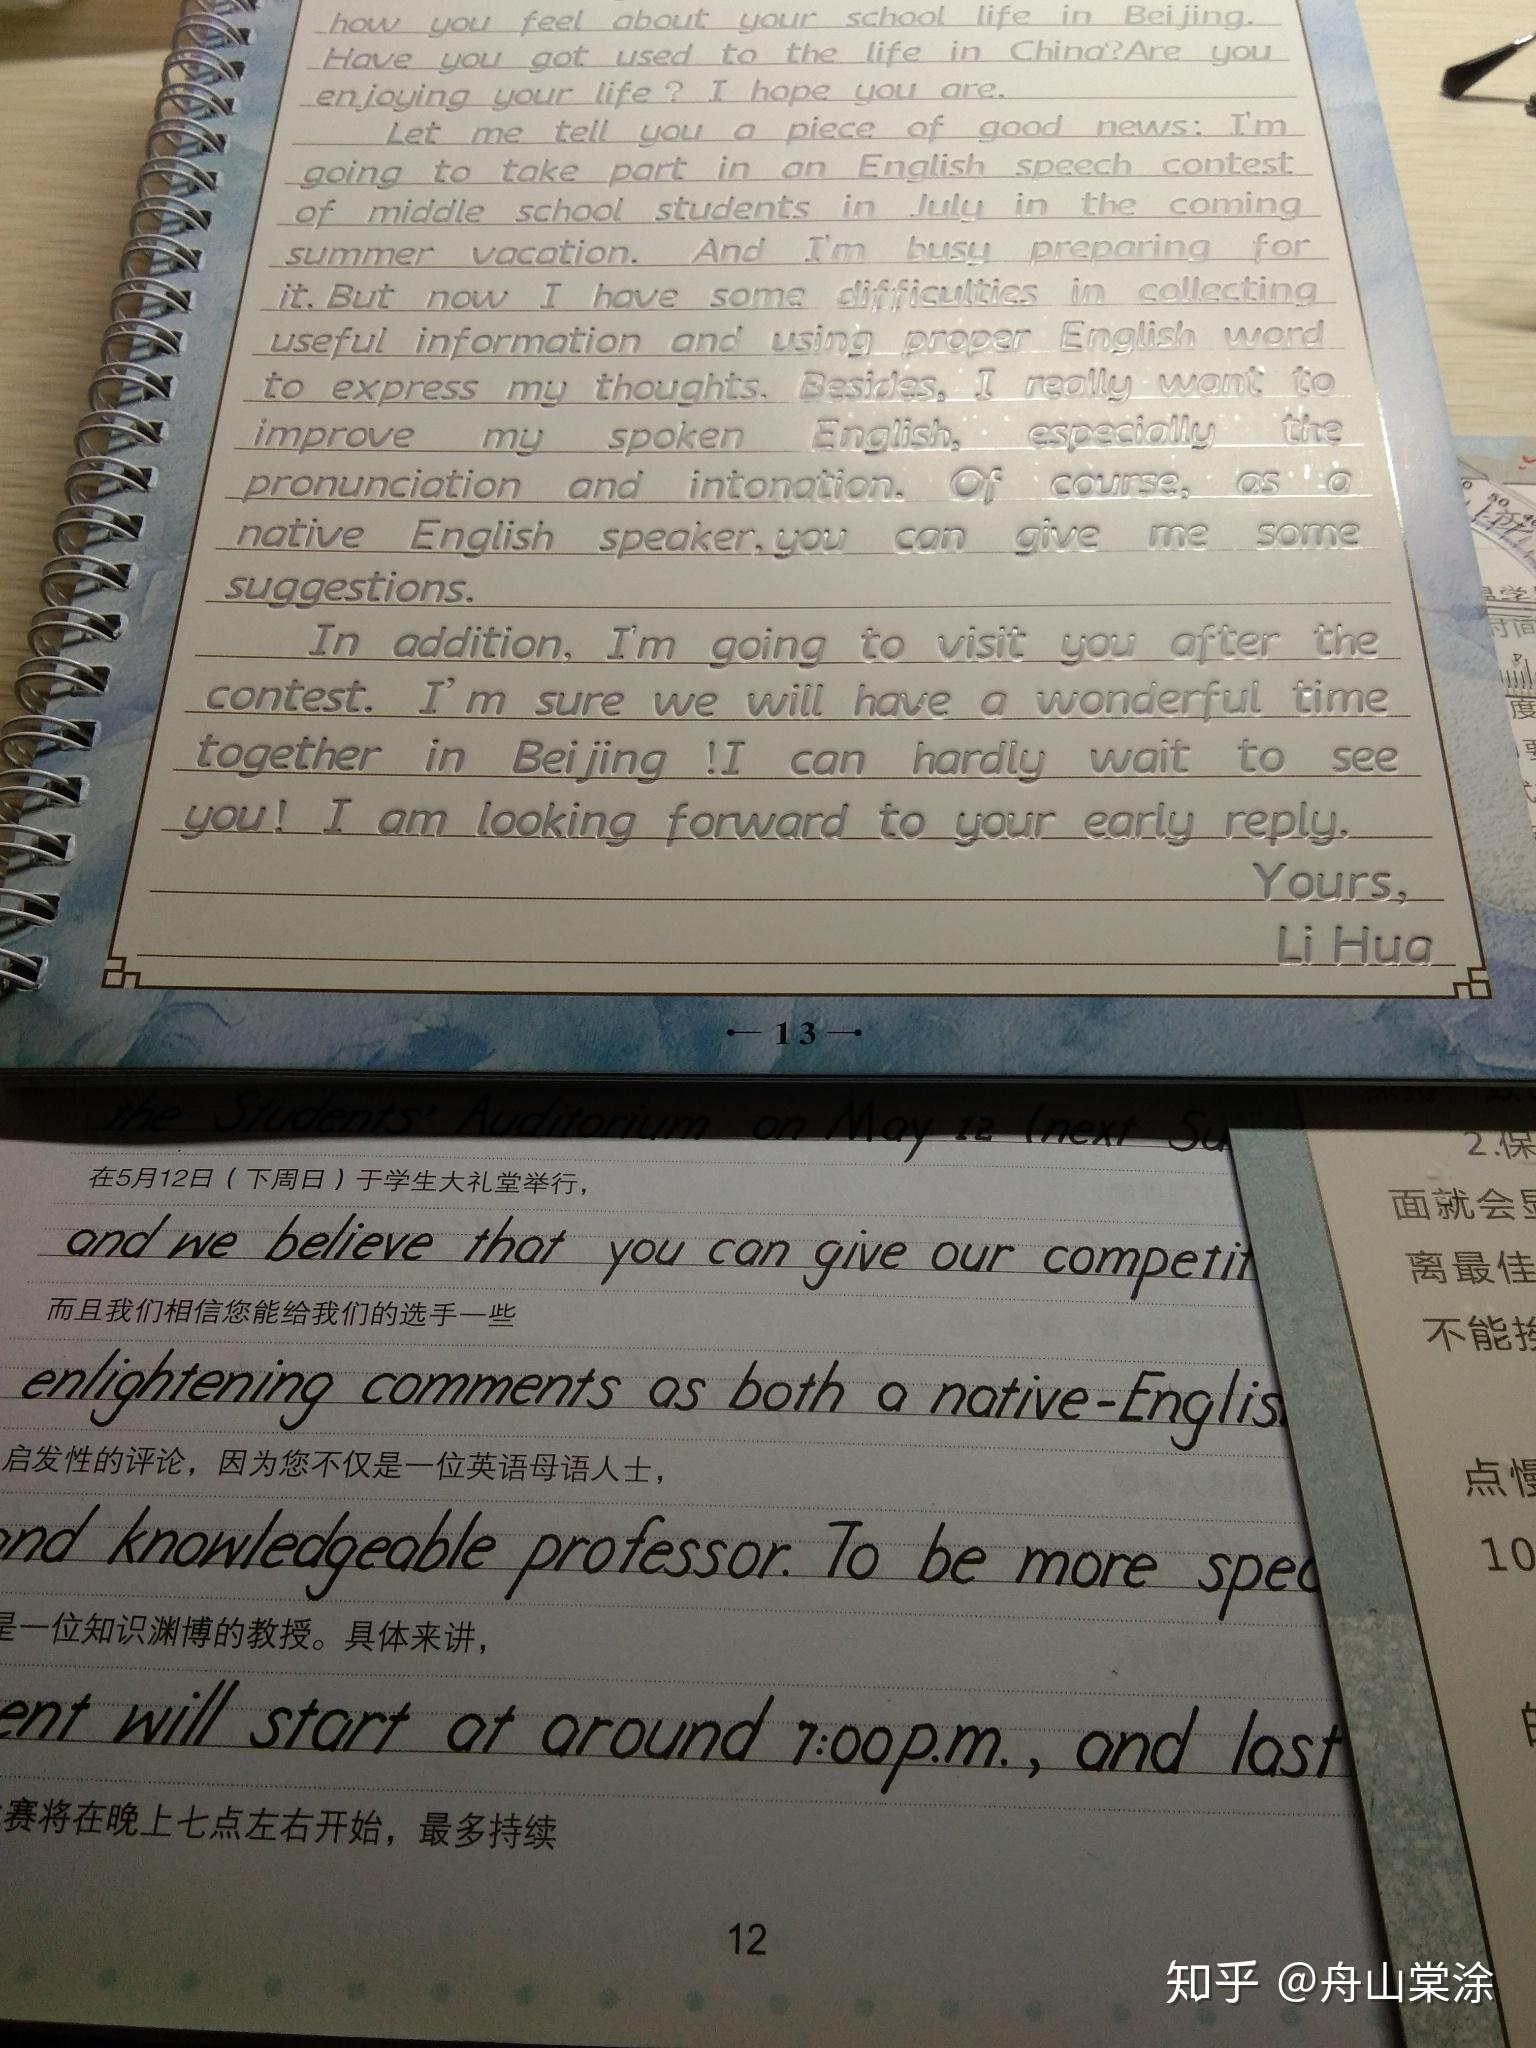 how you feel about your school life in Beijing.
Have you got used to the life in China?Are you
enjoying your life? I hope you are.
Let me tell you a piece of good news: I'm
going to take part in an English speech contest
of middle school students in July in the coming
summer vacation. And I'm busy preparing for
it. But now I have some difficulties in collecting
useful information and using proper English word
to express my thoughts. Besides, I really want to
improve my spoken English, especially the
pronunciation and intonation. Of course, as a
native English speaker, you can give me some
suggestions.
In addition, I'm going to visit you after the
contest. I'm sure we will have a wonderful time
together in Beijing !I can hardly wait to see
you! I am looking forward to your early reply.
Yours,
Li Hua
13
the Students' Auditorium on May 12 (next Su
在5月12日(下周日)于学生大礼堂举行,
and we believe that you can give our competit
而且我们相信您能给我们的选手一些
enlightening comments as both a native-Englis
启发性的评论,因为您不仅是一位英语母语人士,
and knowledgeable professor. To be more spec
是一位知识渊博的教授。具体来讲,
ent will start at around 7:00p.m., and last
赛将在晚上七点左右开始,最多持续
12
2.保
面就会
离最佳
不能挨
点慢
10
知乎 @舟山棠涂